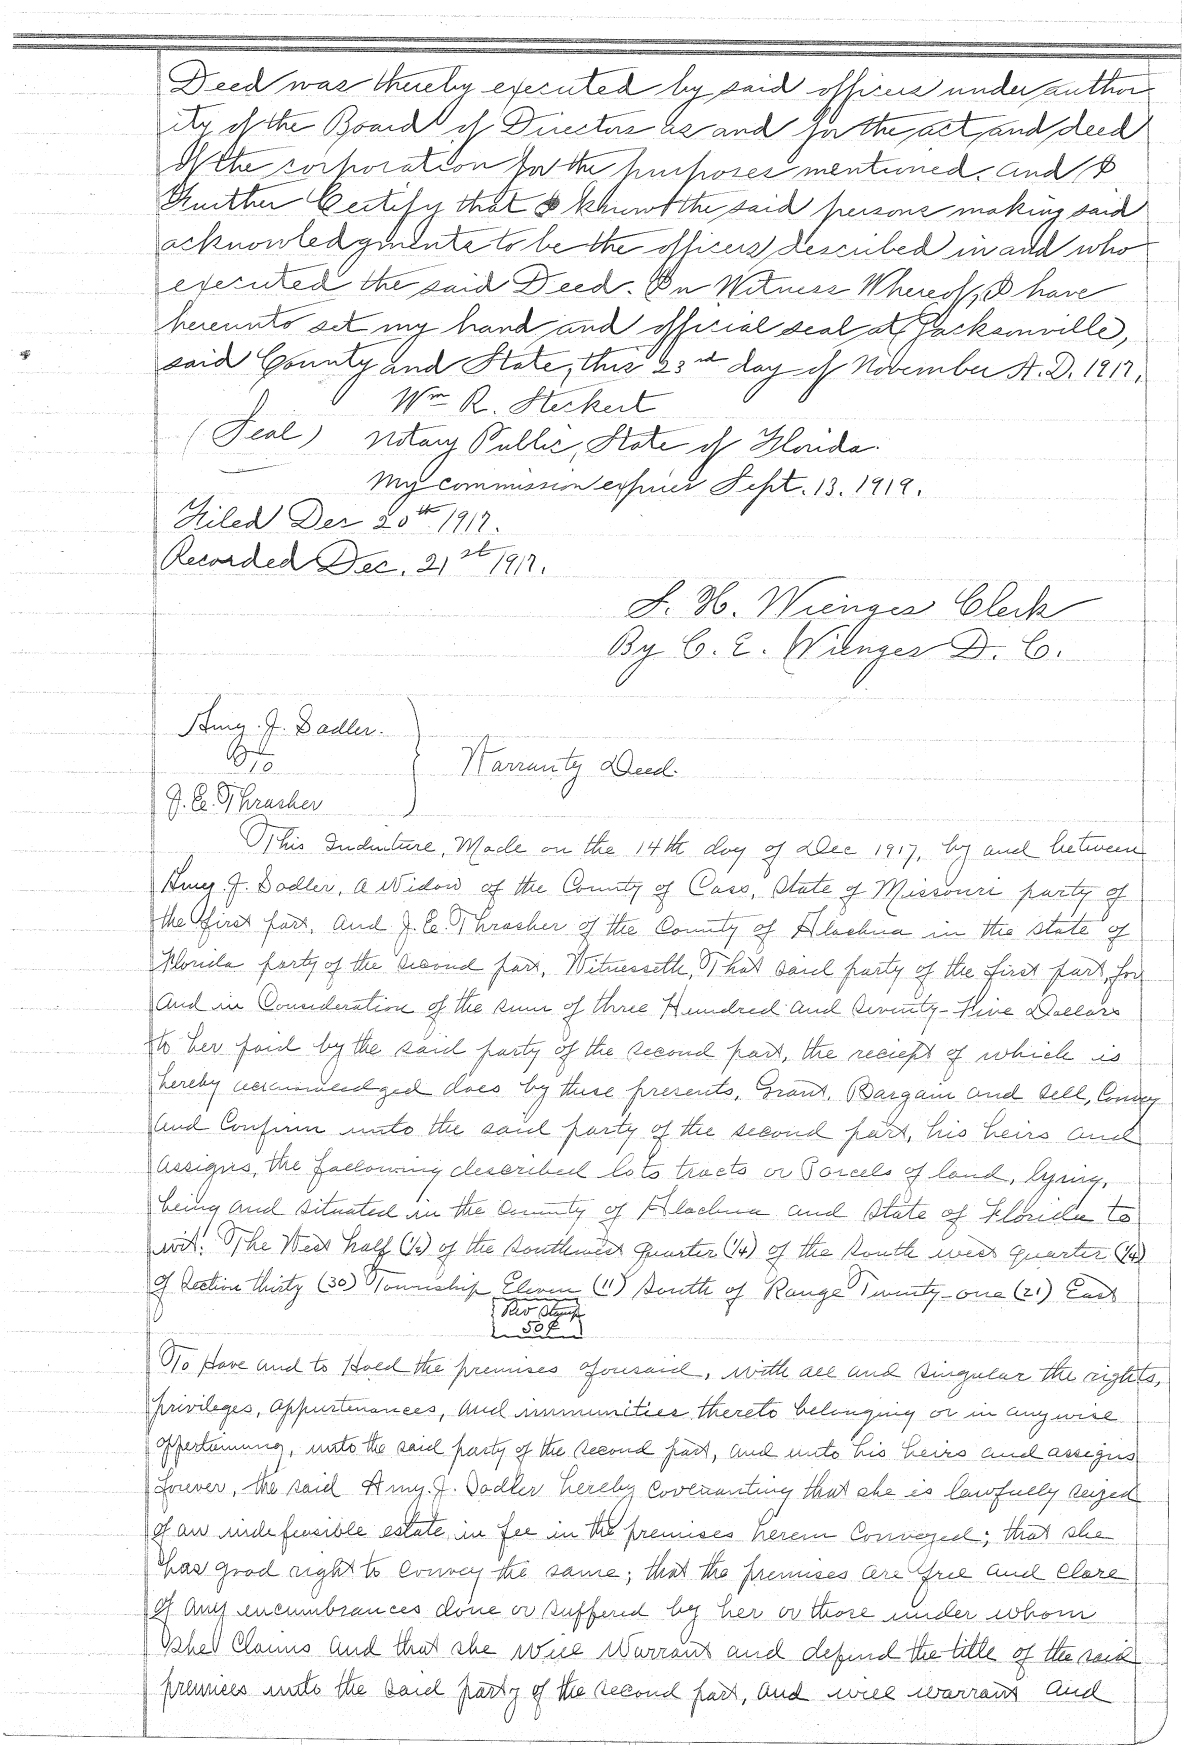 Deed was thereby executed by said officers under author
ity of the Board of Directors as and for the act and deed
of the corporation for the purposes mentioned. And I
Further Certify that I know the said persons making said
acknowledgments to be the officers described in and who
executed the said Deed. In Witness Whereof, I have
hereunto set my hand and official seal at Jacksonville,
said County and State, this 23rd day of November A.D. 1917.
Wm R. Steckert
(Seal) Notary Public, State of Florida.
My commission expires Sept. 13. 1919.
Filed Dec 20th 1917.
Recorded Dec. 21st 1917.
S. H. Wienges Clerk
By C. E. Wienges D. C.
Amy. J. Sadler.
To
Warranty Deed.
J. E. Thrasher
This Indenture, Made on the 14th day of Dec 1917, by and between
Amy. J. Sadler, a Widow of the County of Cass, State of Missouri party of
the first part, and J. E. Thrasher of the County of Alachua in the state of
Florida party of the second part, Witnesseth, That said party of the first part, for
and in Consideration of the sum of three Hundred and Seventy-Five Dollars
to her paid by the said party of the second part, the reciept of which is
hereby acknowledged does by these presents, Grant, Bargain and Sell, Convey
and Confirm unto the said party of the second part, his heirs and
assigns, the following described lots tracts or Parcels of land, lying,
being and situated in the County of Alachua and State of Florida to
wit: The West half (½) of the Southwest Quarter (¼) of the South west quarter (¼)
of Section thirty (30) Township Eleven (11) South of Range Twenty-one (21) East
Rev Stamp
50¢
To Have and to Hold the premises aforesaid, with all and singular the rights,
privileges, appurtenances, and immunities thereto belonging or in anywise
appertaining, unto the said party of the second part, and unto his heirs and assigns
forever, the said Amy. J. Sadler hereby covenanting that she is lawfully seized
of an indefeasible estate in fee in the premises herein conveyed; that she
has good right to convey the same; that the premises are free and clare
of any encumbrances done or suffered by her or those under whom
she Claims and that she will Warrant and defend the title of the said
premises unto the said party of the second part, and will warrant and